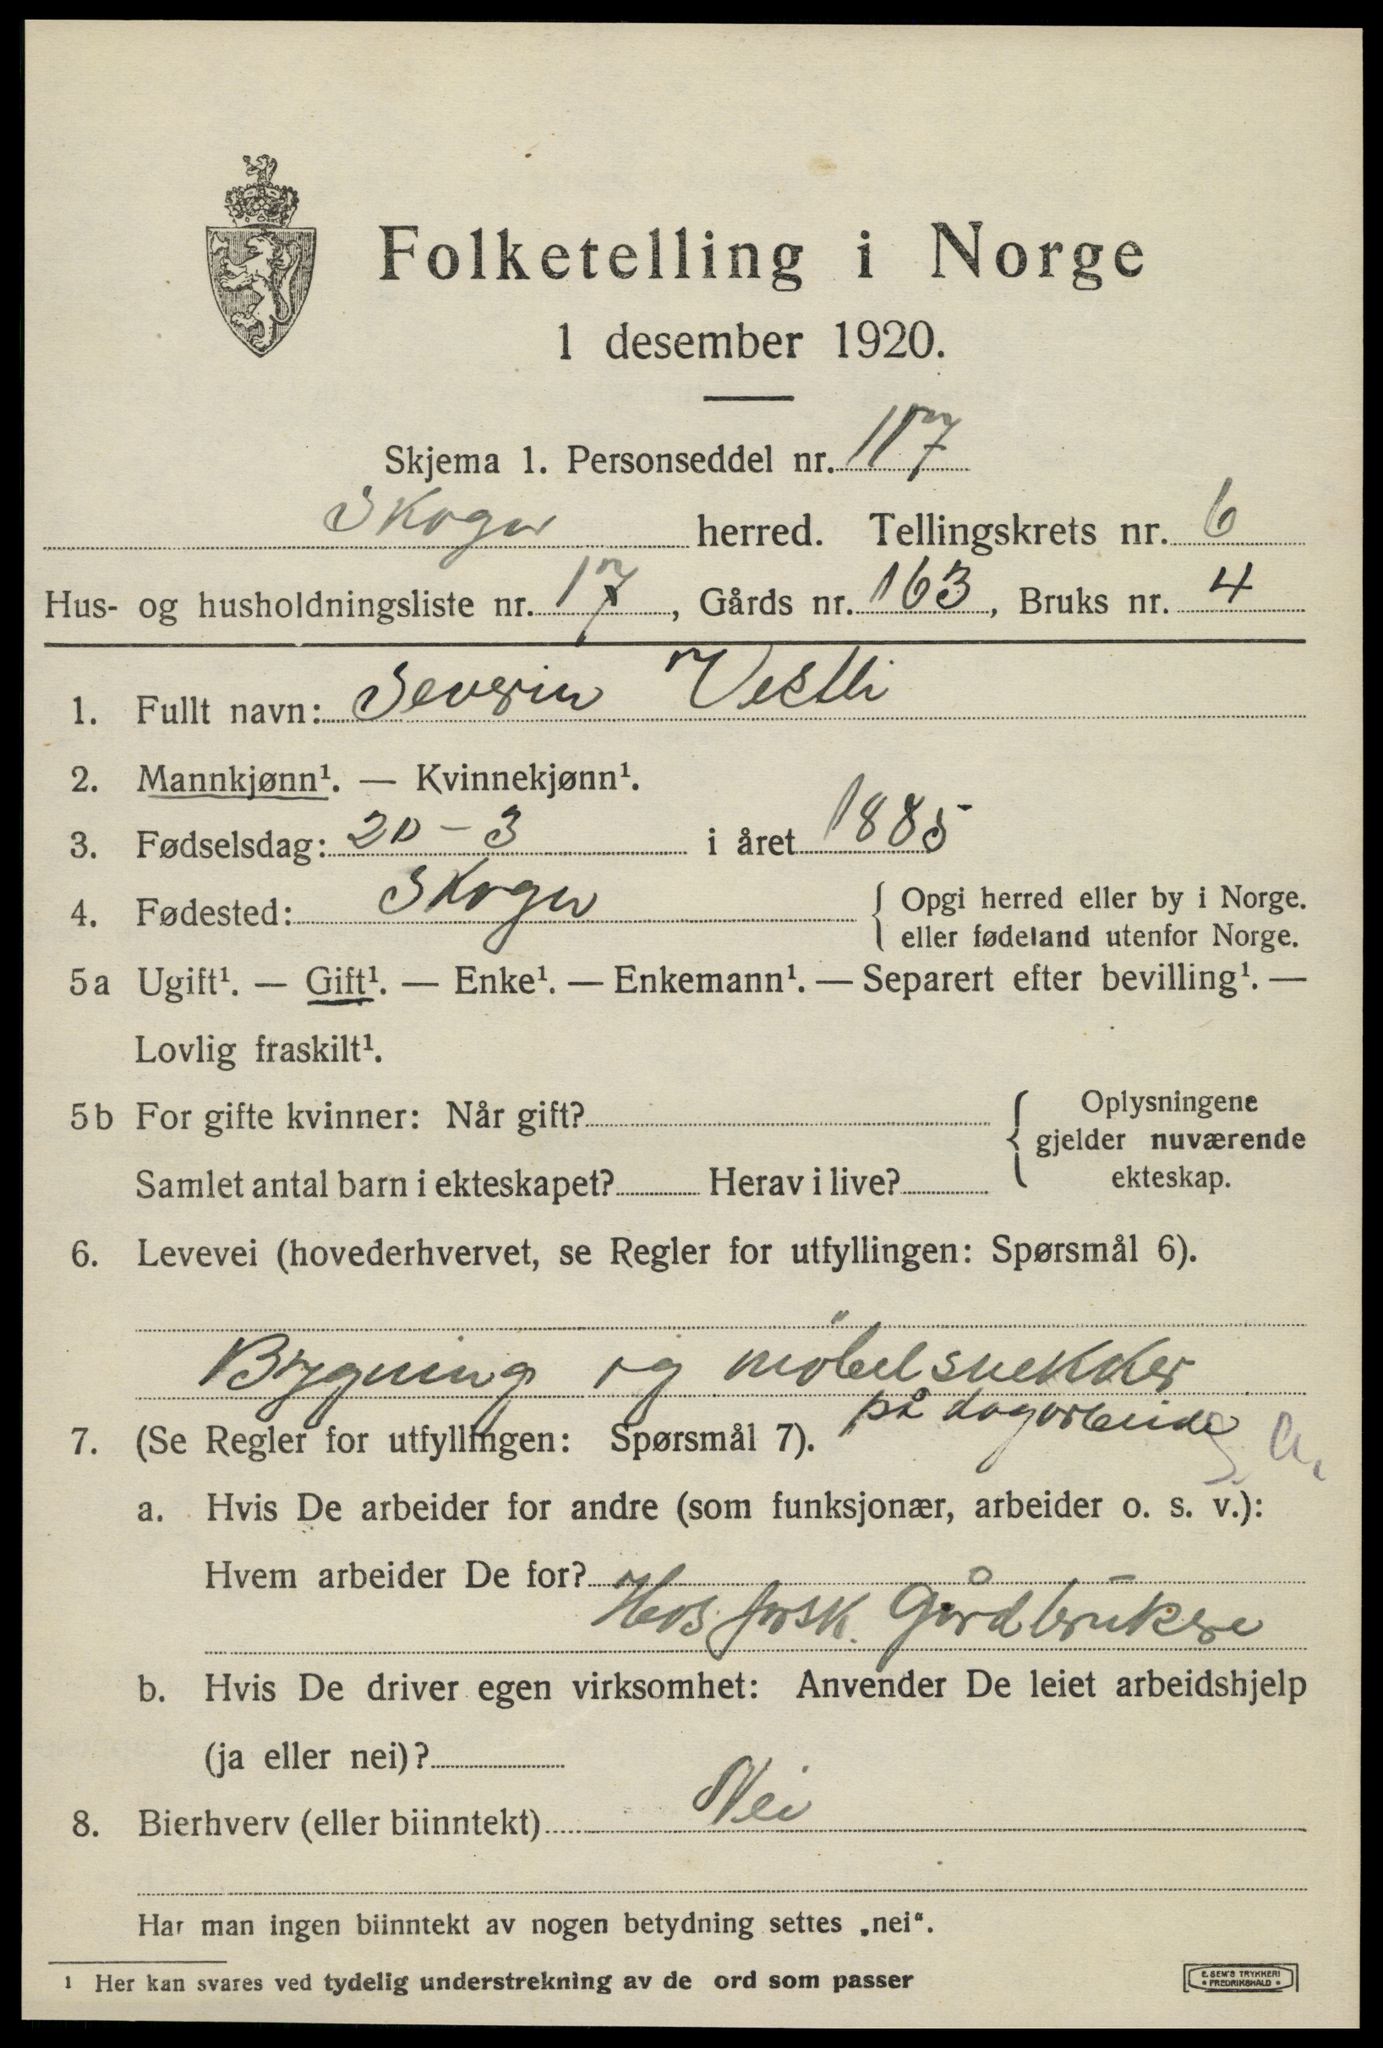 Folketelling i Norge
1 desember 1920.
Skjema 1. Personseddel nr. 117
Skoger herred. Tellingskrets nr. 6
Hus- og husholdningsliste nr. 17, Gårds nr. 163, Bruks nr. 4
1. Fullt navn: Severin Vestli
2. Mannkjønn¹. — Kvinnekjønn¹.
3. Fødselsdag: 20 - 3 i året 1885
4. Fødested: Skoger { Opgi herred eller by i Norge.
eller fødeland utenfor Norge.
5a Ugift¹. — Gift¹. — Enke¹. — Enkemann¹. — Separert efter bevilling¹. —
Lovlig fraskilt¹.
5b For gifte kvinner: Når gift? { Oplysningene
gjelder nuværende
Samlet antal barn i ekteskapet? Herav i live? ekteskap.
6. Levevei (hovederhvervet, se Regler for utfyllingen: Spørsmål 6).
Bygning og møbelsnekker
på dagarbeide
7. (Se Regler for utfyllingen: Spørsmål 7).
a. Hvis De arbeider for andre (som funksjonær, arbeider o. s. v.):
Hvem arbeider De for?
Hos forsk. Gårdbrukere
b. Hvis De driver egen virksomhet: Anvender De leiet arbeidshjelp
(ja eller nei)?
8. Bierhverv (eller biinntekt) Nei
Har man ingen biinntekt av nogen betydning settes „nei“.
¹ Her kan svares ved tydelig understrekning av de ord som passer
E. SEM'S TRYKKERI
• FREDRIKSHALD •